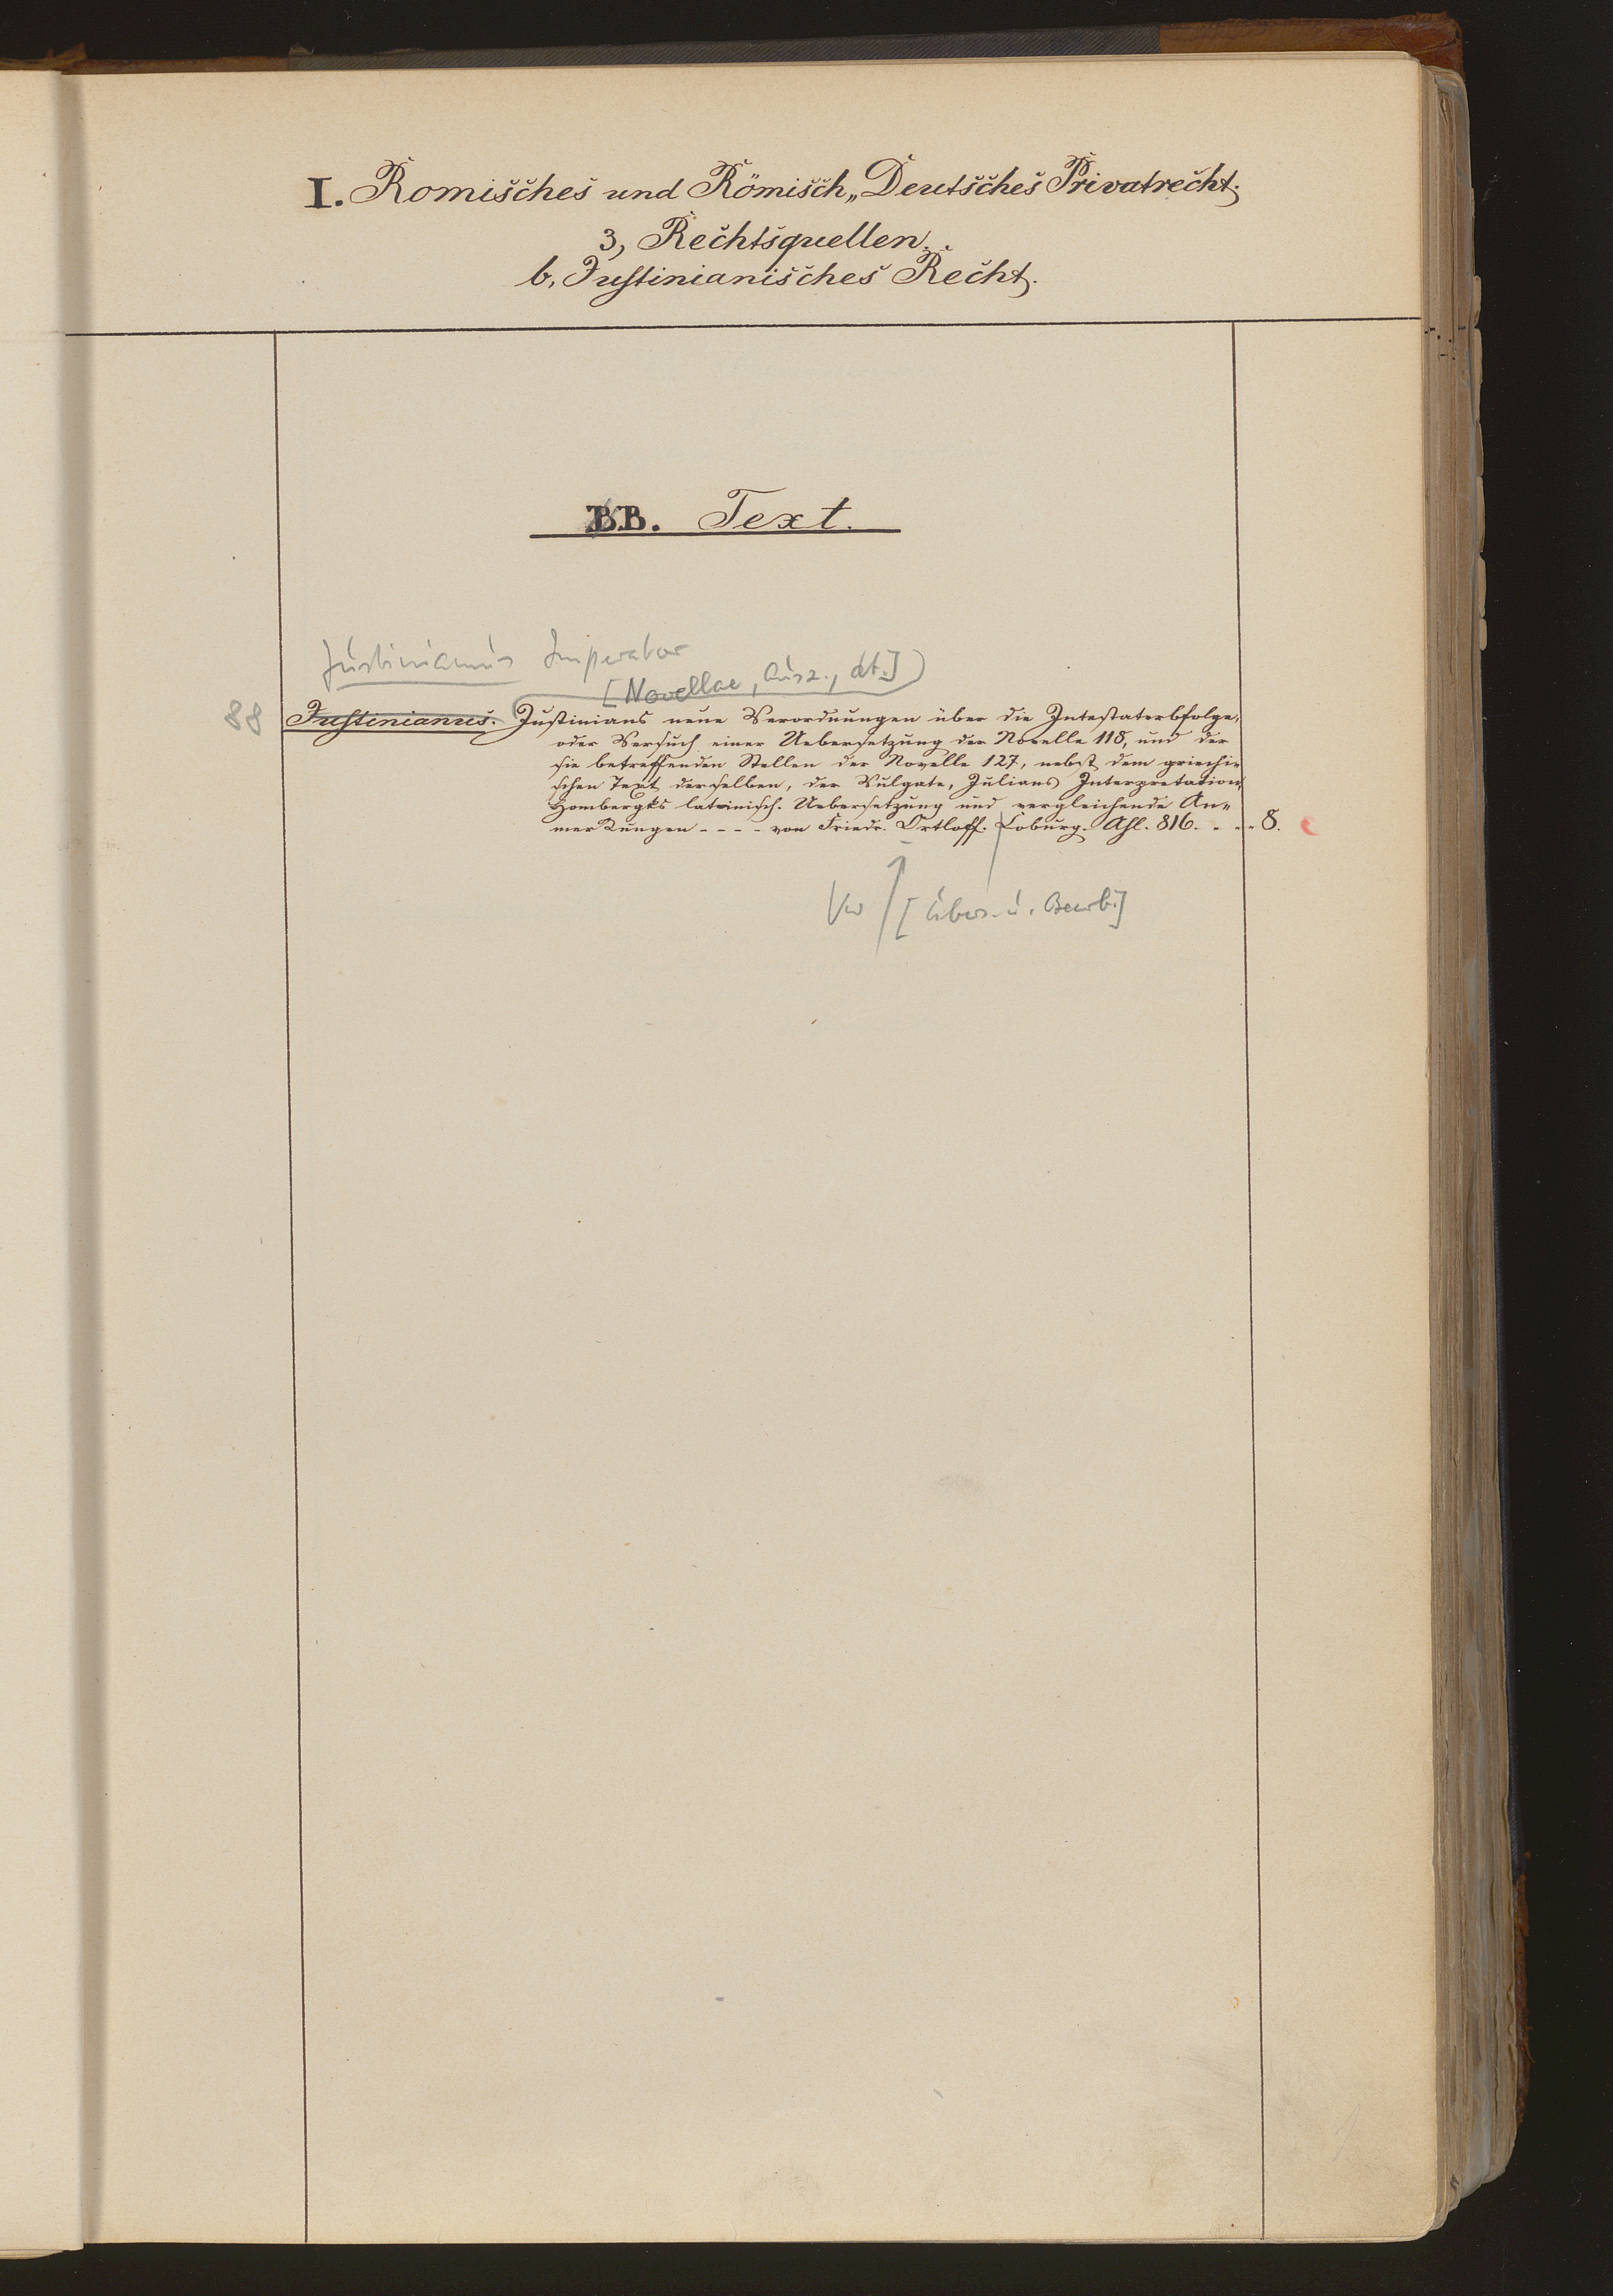 I. Romisches und Römisch„Deutsches Privatrecht.
3, Rechtsquellen.
b, Justinianisches Recht.
BB. Text.
Justinianus Imperator
[Novellae, Ausz., dt.]
88 Justinianus. Justinians neue Verordnungen über die Intestaterbfolge,
oder Versuch einer Uebersetzung der Novelle 118, und der
sie betreffenden Stellen der Novelle 127, nebst dem griechi„
schen Text derselben, der Vulgate, Julians Interpretation,
Hombergks lateinisch. Uebersetzung und vergleichende An„
merkungen - - - - von Friedr. Ortloff. Coburg. Ahl. 816. - - - 8.
Vw [Übers. u. Bearb.]